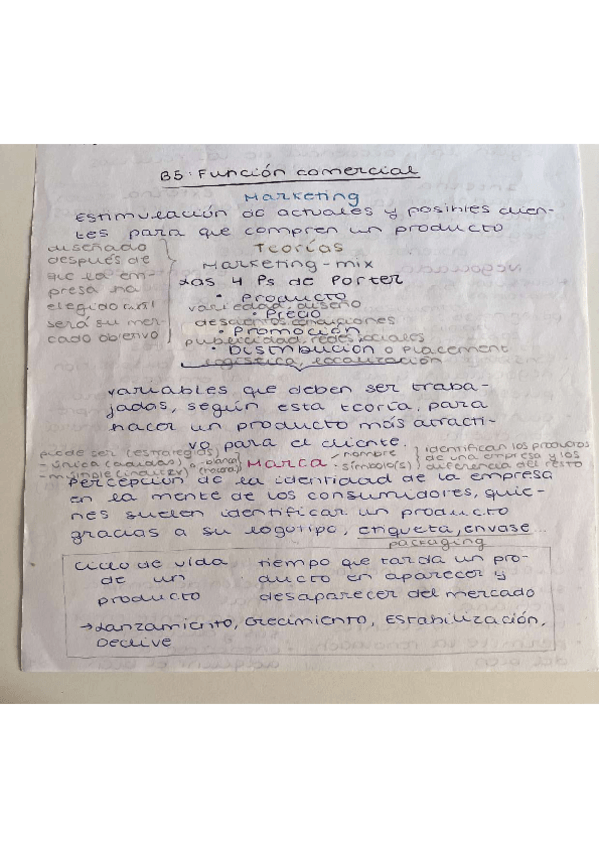 B5: Función comercial
Marketing
Estimulación de actuales y posibles clien-
tes para que compren un producto
diseñado
después de
que la em-
presa ha
elegido cuál
será su mer-
cado objetivo
Teorías
Marketing-mix
Las 4 Ps de Porter
• Producto
variedad, diseño
• Precio
descuentos, condiciones
• Promoción
publicidad, redes sociales
• Distribución o placement
logística, localización
variables que deben ser traba-
jadas, según esta teoría, para
hacer un producto más atracti-
vo para el cliente.
puede ser (estrategias)
- única (adidas)
- múltiple (inditex)
- blanca
Marca
- nombre
- símbolo(s)
identifican los productos
de una empresa y los
diferencia del resto
Percepción de la identidad de la empresa
en la mente de los consumidores, quie-
nes suelen identificar un producto
gracias a su logotipo, etiqueta, envase...
packaging
Ciclo de vida
de un
producto
tiempo que tarda un pro-
ducto en aparecer y
desaparecer del mercado
→ Lanzamiento, crecimiento, estabilización,
Declive